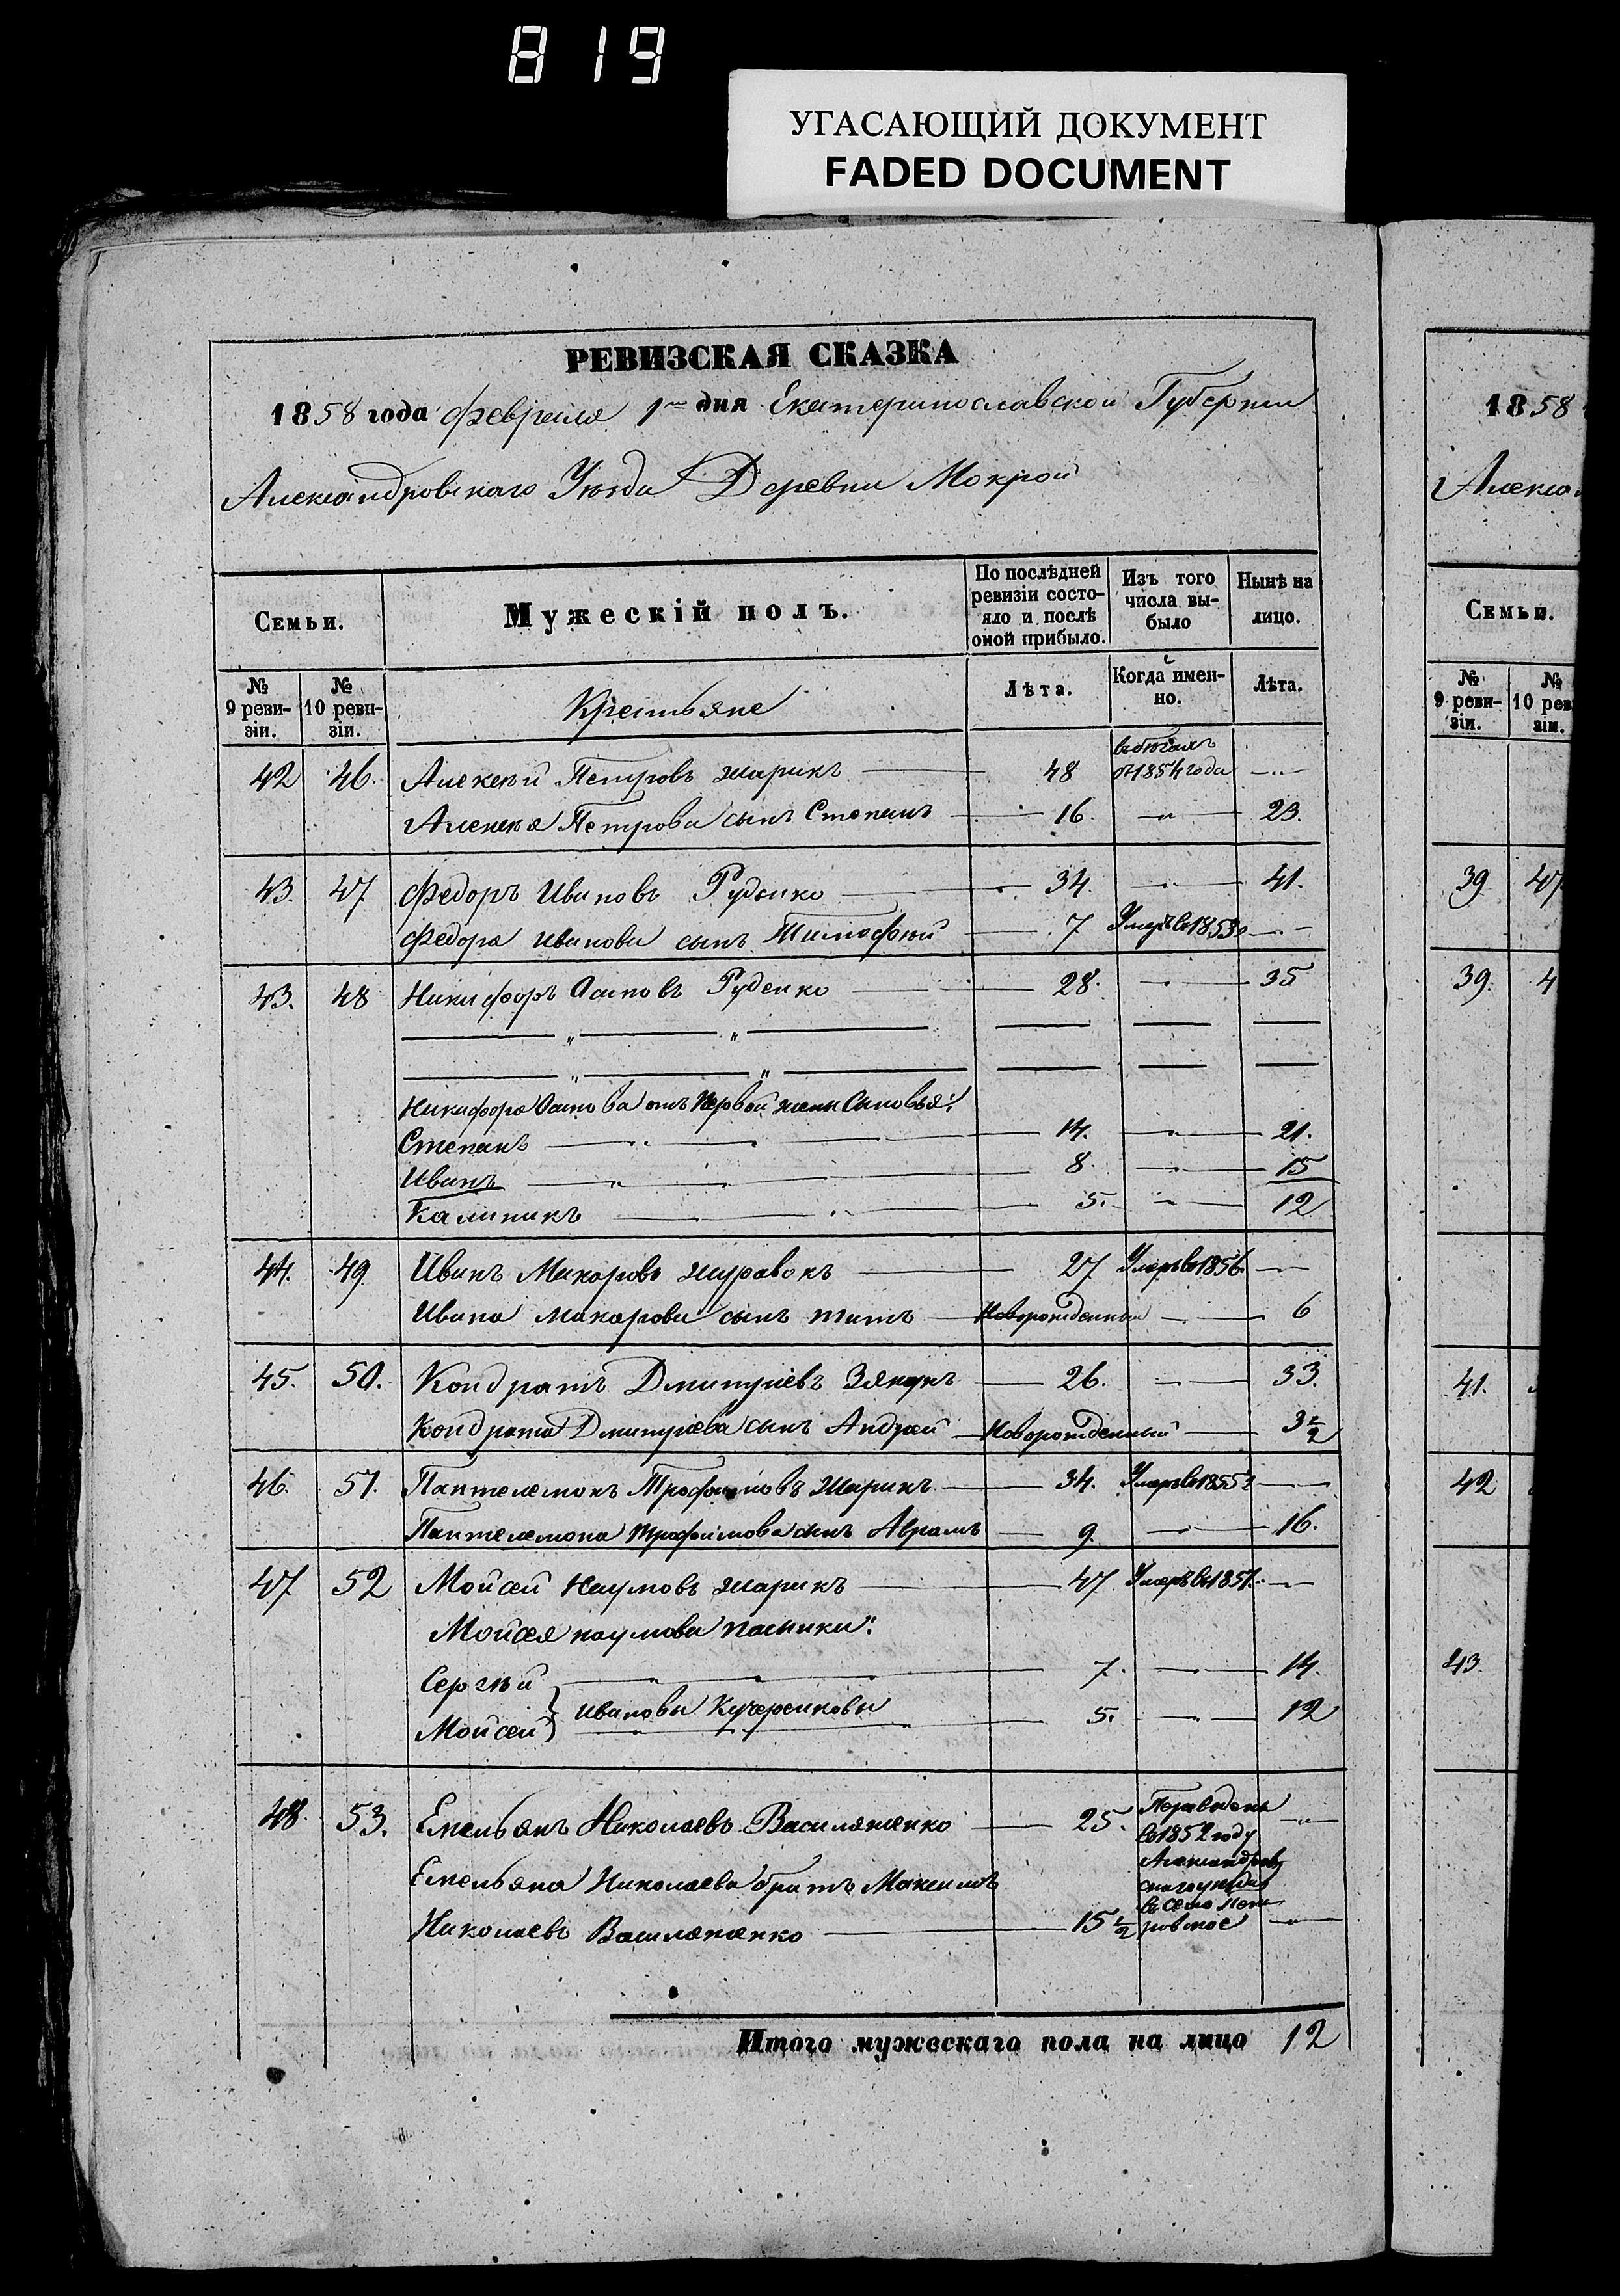 819
УГАСАЮЩИЙ ДОКУМЕНТ
FADED DOCUMENT
РЕВИЗСКАЯ СКАЗКА
1858 года февраля 1го дня Екатеринославской Губернии
Александровскаго Уезда Деревни Мокрой
Семьи. Мужескій полъ. По послѣдней ревизіи состояло и послѣ оной прибыло. Изъ того числа выбыло Нынѣ на лицо.
№ 9 ревизіи. № 10 ревизіи. Крестьяне Лѣта. Когда именно. Лѣта.
въ бѣгахъ
42 46. Алексѣй Петровъ Жарикъ 48 от 1854 года
Алексѣя Петрова сынъ Степанъ 16. 23.
43. 47 Федоръ Ивановъ Руденко 34. 41.
Федора Иванова сынъ Тимофѣй 7 Умеръ въ 1853
43. 48 Никифоръ Осиповъ Руденко 28. 35
Никифора Осипова отъ Первой жены Сыновья:
Степанъ 14. 21.
Иванъ 8. 15
Калиникъ 5. 12
44. 49 Иванъ Макаровъ Журавокъ 27 Умеръ въ 1856.
Ивана Макарова сынъ Титъ Новорожденный 6
45. 50. Кондратъ Дмитріевъ 26. 33.
Кондрата Дмитріева сынъ Андрей Новорожденный 3 1/2
46. 51. Пантелемонъ Трофимовъ Жарикъ 34. Умеръ въ 1855
Пантелемона Трофимова сынъ Аврамъ 9. 16.
47 52 Мойсей Наумовъ Жарикъ 47 Умеръ въ 1857.
Мойсея Наумова пасынки:
Сергѣй 7. 14.
Ивановы Кучеренковы
Мойсей 5. 12
48. 53. Емельянъ Николаевъ Василяненко 25. Переведенъ
въ 1852 году
Александров
Емельяна Николаева братъ Максимъ скаго уезда
въ село
Николаевъ Василяненко 15 1/2 ровское
Итого мужескаго пола на лицо 12
1858
Алекса
Семьи.
№ 9 ревизіи. № 10 рев зіи.
39 47
39. 4
41.
42
43